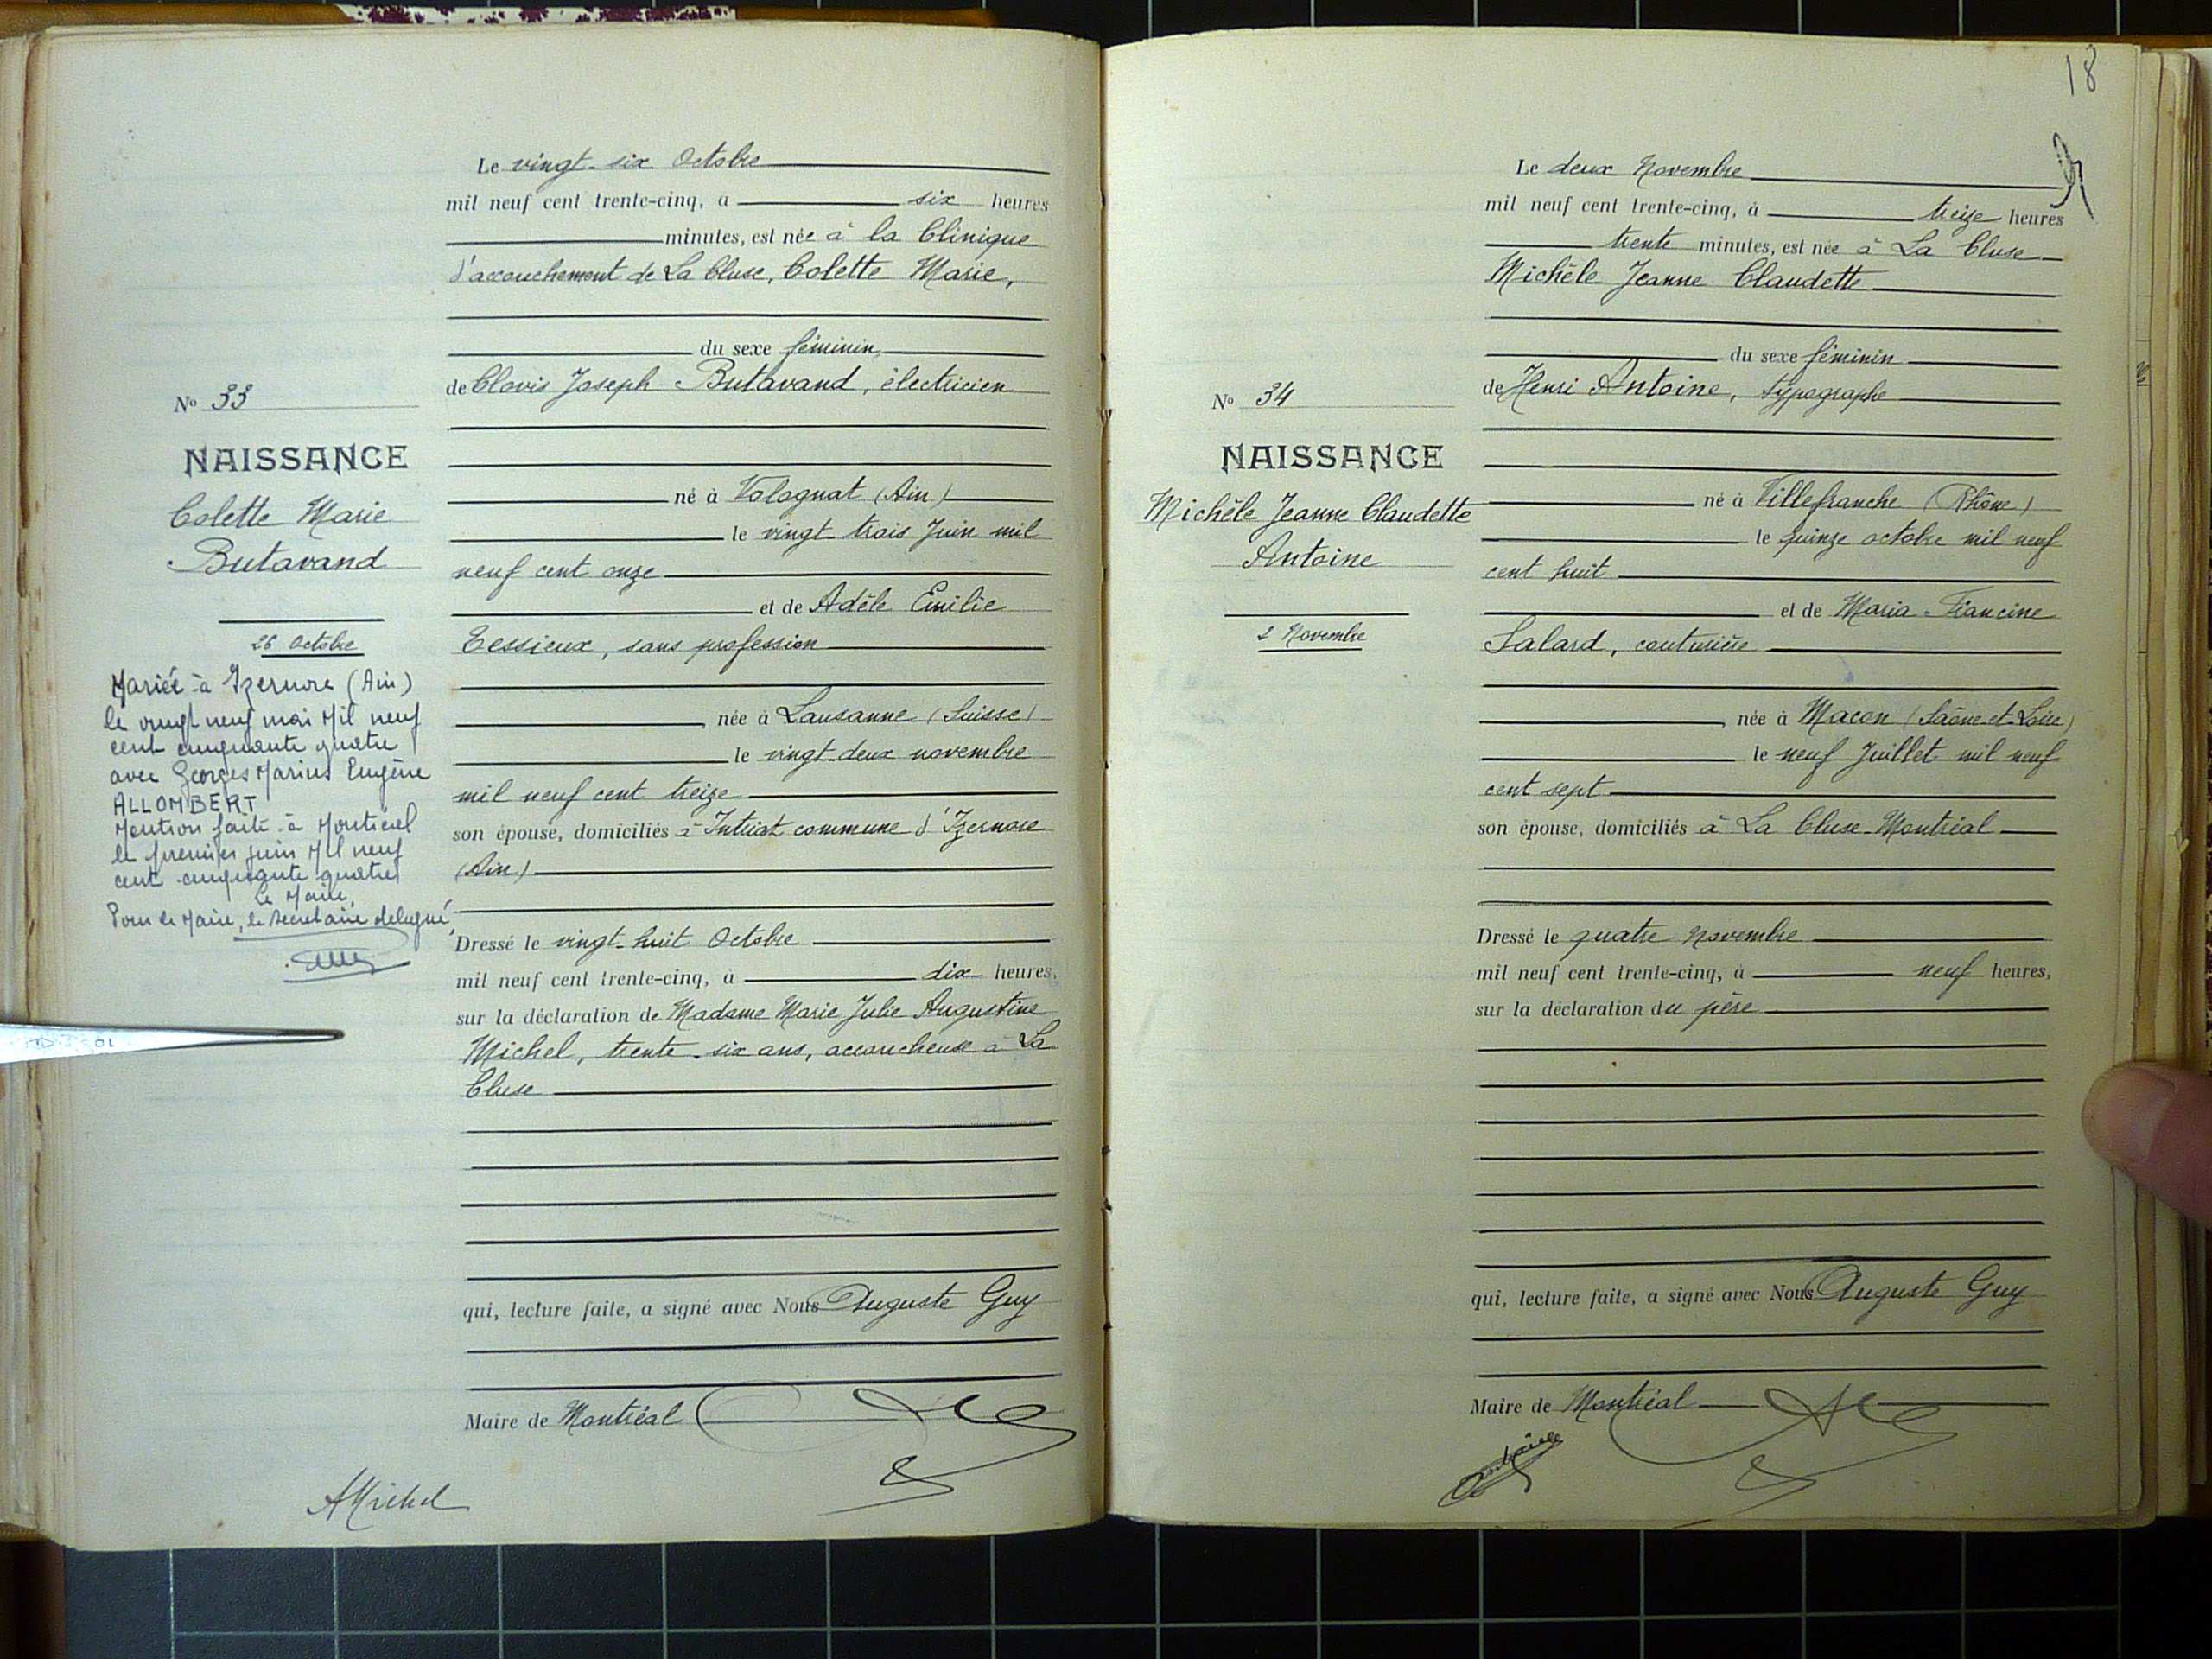 Le vingt-six Octobre
mil neuf cent trente-cinq, à six heures
minutes, est née à la Clinique
d'accouchement de La Cluse, Colette Marie,
du sexe féminin
de Clovis Joseph Butavand, électricien
né à Volognat (Ain)
le vingt trois Juin mil
neuf cent onze
et de Adèle Emilie
Tessieux, sans profession
née à Lausanne (Suisse)
le vingt-deux novembre
mil neuf cent treize
son épouse, domiciliés à Intriat commune d'Izernore
(Ain)
Dressé le vingt-huit Octobre
mil neuf cent trente-cinq, à dix heures,
sur la déclaration de Madame Marie Julie Augustine
Michel, trente-six ans, accoucheuse à La
Cluse
qui, lecture faite, a signé avec Nous Auguste Guy
Maire de Montréal
AMichel
No 33
NAISSANCE
Colette Marie
Butavand
26 Octobre
Mariée à Izernore (Ain)
le vingt neuf mai Mil neuf
cent cinquante quatre
avec Georges Marius Eugène
ALLOMBERT
Mention faite à Montréal
le premier juin Mil neuf
cent cinquante quatre
Le Maire,
Pour le Maire, le Secrétaire délégué,
18
Le deux Novembre
mil neuf cent trente-cinq, à treize heures
trente minutes, est née à La Cluse
Michèle Jeanne Claudette
du sexe féminin
de Henri Antoine, typographe
né à Villefranche (Rhône)
le quinze octobre mil neuf
cent huit
et de Maria-Francine
Salard, couturière
née à Macon (Saône et Loire)
le neuf Juillet mil neuf
cent sept
son épouse, domiciliés à La Cluse-Montréal
Dressé le quatre Novembre
mil neuf cent trente-cinq, à neuf heures,
sur la déclaration du père
qui, lecture faite, a signé avec Nous Auguste Guy
Maire de Montréal
No 34
NAISSANCE
Michèle Jeanne Claudette
Antoine
2 Novembre